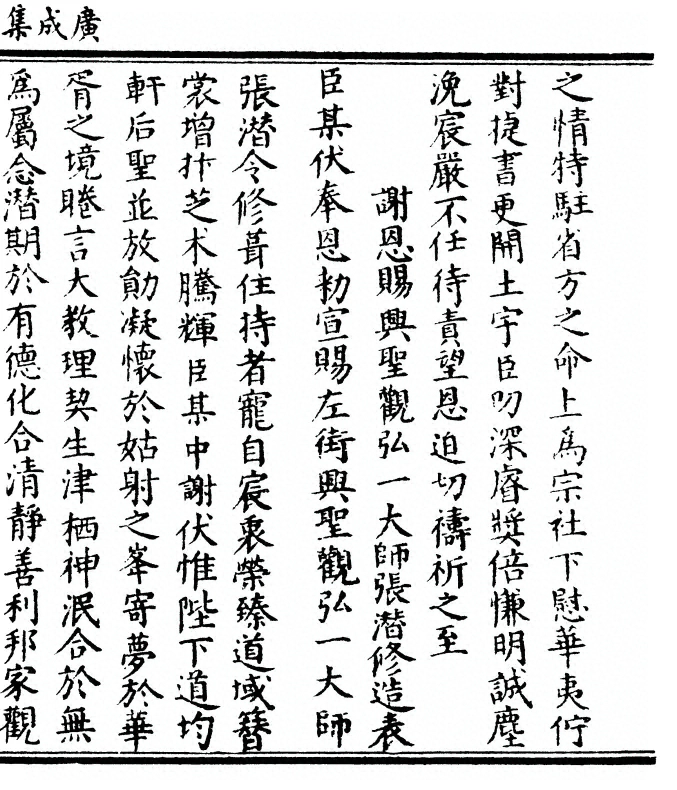 廣成集
之情特駐省方之命上爲宗社下慰華夷佇
對捷書更開土宇臣叨深睿奬倍慊明誠塵
浼宸嚴不任待責望恩迫切禱祈之至
謝恩賜興聖觀弘一大師張潛修造表
臣某伏奉恩勅宣賜左街興聖觀弘一大師
張潛令修葺住持者寵自宸衷榮臻道域簪
裳增抃芝术騰輝臣某中謝伏惟陛下道均
軒后聖並放勛凝懷於姑射之峯寄夢於華
胥之境睠言大教理契生津栖神泯合於無
爲屬念潛期於有德化合清靜善利邦家觀